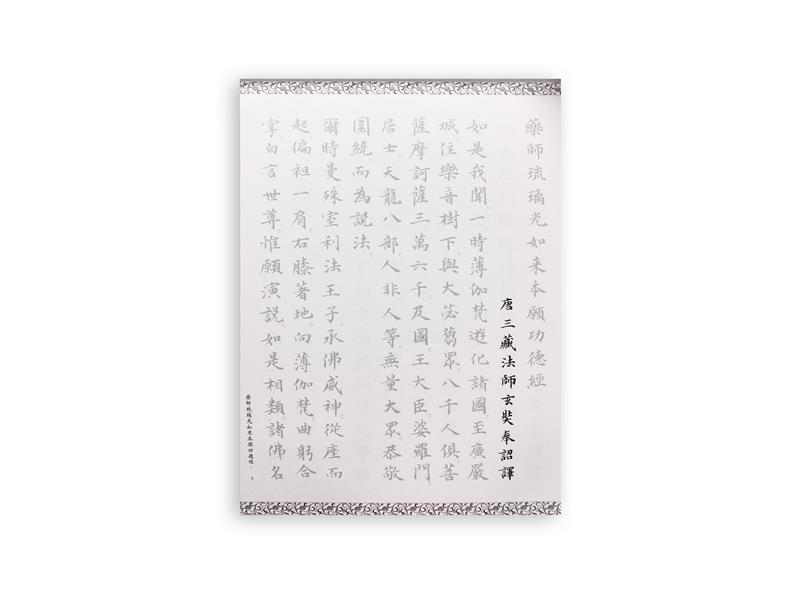 藥師琉璃光如来本願功德經
唐三藏法師玄奘奉詔譯
如是我聞一時薄伽梵遊化諸國至廣嚴
城住樂音樹下與大苾蒭眾八千人俱菩
薩摩訶薩三萬六千及國王大臣婆羅門
居士天龍八部人非人等無量大眾恭敬
圍繞而為說法
爾時曼殊室利法王子承佛威神從座而
起偏袒一肩右膝著地向薄伽梵曲躬合
掌白言世尊惟願演說如是相類諸佛名
藥師琉璃光如来本願功德經 1